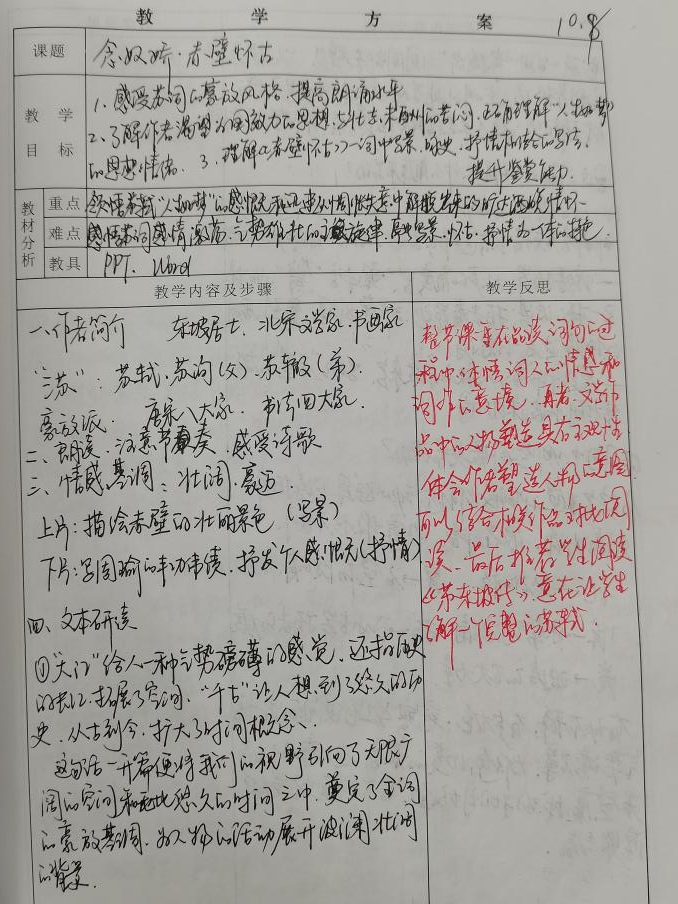 教 学 方 案
10.8
课题 念奴娇·赤壁怀古
教 学 目 标
1、感受苏词的豪放风格,提高朗诵水平
2、了解作者渴望为国效力的思想与壮志未酬的苦闷,正确理解"人生如梦"
的思想情绪。3、理解《赤壁怀古》一词中写景、咏史、抒情相结合的写法,
提升鉴赏能力.
教材分析
重点 领悟苏式"人生如梦"的感慨
难点 感悟苏词感情激荡、气势雄壮的主旋律,融写景、怀古、抒情为一体的特色
教具 PPT、Word
教学内容及步骤
教学反思
一、作者简介 东坡居士、北宋文学家、书画家
"三苏":苏轼、苏洵(父)、苏辙(弟).
豪放派、唐宋八大家、书法四大家.
二、朗读、注意节奏,感受诗歌
三、情感基调:壮阔、豪迈
上片:描绘赤壁的壮丽景色(写景)
下片:写周瑜的丰功伟绩,抒发个人感慨(抒情)
四、文本研读
①"大江"给人一种气势磅礴的感觉,还指历史
的长江,拓展了空间,"千古"让人想到了悠久的历
史,从古到今,扩大了时间概念、
这句话一开篇便将我们的视野引向了无限广
阔的空间和悠久的时间之中,奠定了全词
的豪放基调,为人物的活动展开波澜壮阔
的背景.
整节课重在品读词句的过
程中体悟词人的情感和
词作的意境,再者,文学作
品中的人物塑造具有
体会作者塑造人物的意图
可以结合相关作品对比阅
读,最后推荐学生阅读
《苏东坡传》,意在让学生
了解一个完整的苏轼.